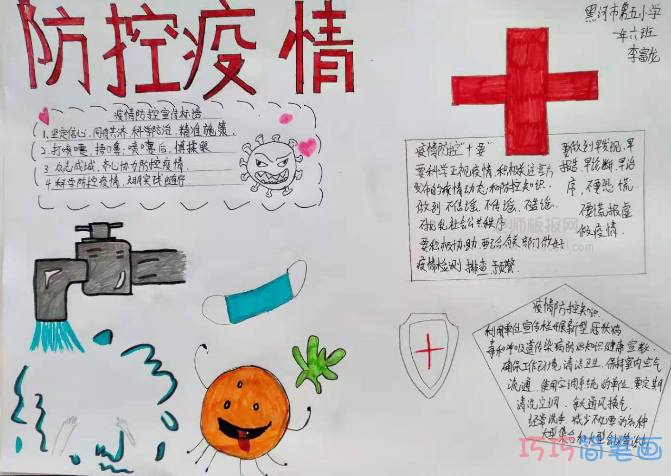 防控疫情
黑河市第五小学
一年六班
李富龙
疫情防控宣传标语
1、坚定信心、同舟共济、科学防治、精准施策。
2、打喷嚏 捂口鼻,喷嚏后,慎揉眼
3、众志成城,齐心协力防控疫情。
4、科学防控疫情,文明实践随行
疫情防控"十要"
要科学正视疫情,积极关注官方
发布的疫情动态和防控知识。
做到不信谣、不传谣、不造谣、
不扰乱社会公共秩序
要积极协助、配合有关部门做好
疫情检测 排查 预警
要做到早发现、早
报告、早诊断、早治
疗,不要恐慌
不谎报虚
假疫情.
疫情防控知识
利用单位宣传栏开展新型冠状病
毒和呼吸道传染病防治知识健康宣教.
确保工作环境清洁卫生,保持室内空气
流通,使用空调系统的单位,要定期
清洗空调,每天通风换气
经常洗手,减少不必要的各种
大型集会和大型会议等活动
巧巧简笔画